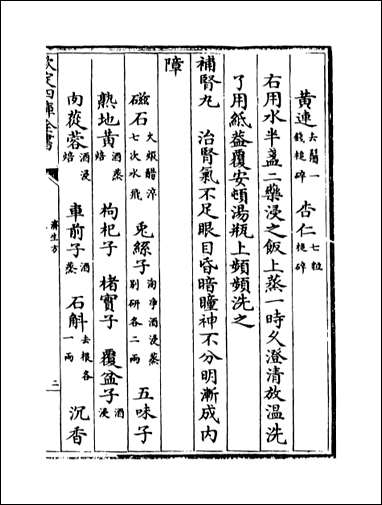 黄連 去鬚一錢槌碎 杏仁 七粒槌碎
右用水半盞二藥浸之飯上蒸一時久澄清放温洗
了用紙葢覆安頓湯瓶上頻頻洗之
補腎丸 治腎氣不足眼目昏暗瞳神不分明漸成内
障
磁石 火煅醋淬七次水飛 兎絲子 淘净酒浸蒸别研各二兩 五味子
熟地黄 酒蒸焙 枸杞子 楮實子 覆盆子 酒浸
肉蓯蓉 酒浸焙 車前子 酒蒸 石斛 去根各一兩 沉香
欽定四庫全書 濟生方 二